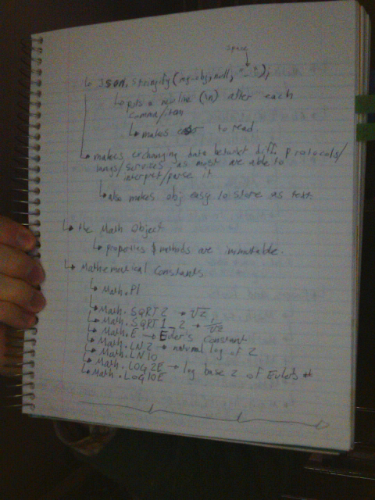 space
↳ JSON.stringify(my-obj, null, " ");
↳ puts a newline (\n) after each
comma/
↳ makes easy to read
↳ makes exchanging data between diff. protocols/
/services as most are able to
interpret/parse it
↳ also makes obj easy to store as text
↳ The Math Object
↳ properties & methods are immutable.
↳ Mathematical Constants
↳ Math.PI
↳ Math.SQRT2 → √2
↳ Math.SQRT1_2 →
↳ Math.E → Euler's constant
↳ Math.LN2 → natural log of 2
↳ Math.LN10
↳ Math.LOG2E → log base 2 of Euler's #
↳ Math.LOG10E